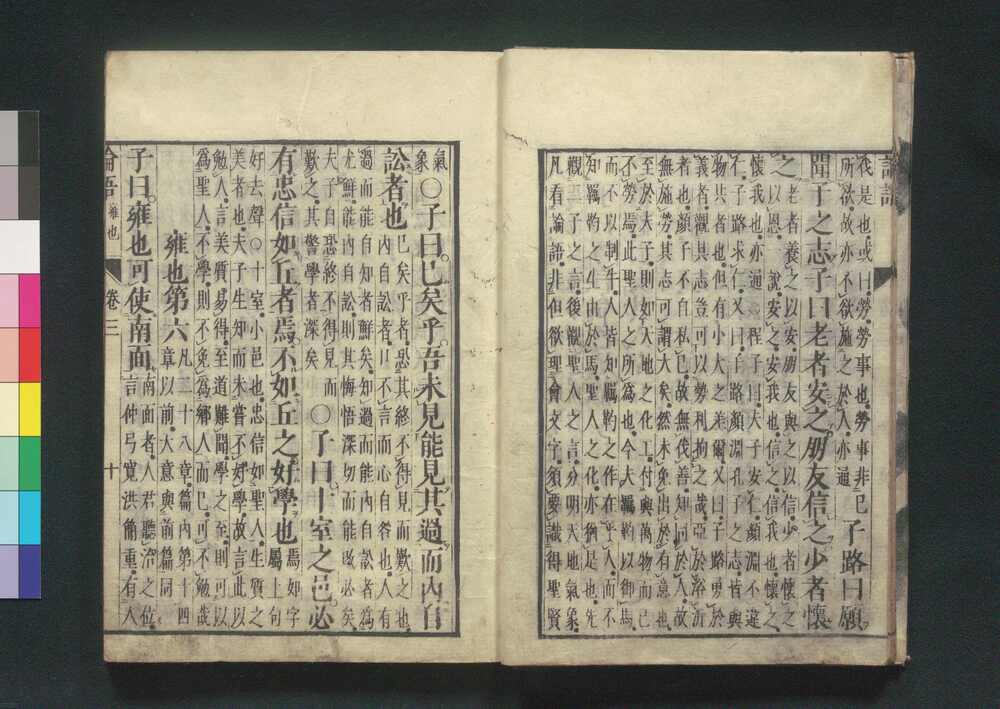 論語
我是也或曰勞勞事也勞事非己
所欲故亦不欲施之於人亦通
子路曰願
聞子之志子曰老者安之朋友信之少者懷
之
老者養之以安朋友與之以信少者懷之
以恩一說安之安我也信之信我也懷之
懷我也亦通○程子曰夫子安仁顏淵不違
仁子路求仁又曰子路顏淵孔子之志皆與
物共者也但有小大之差爾又曰子路勇於
義者觀其志豈可以勢利拘之哉亞於浴沂
者也顏子不自私己故無伐善知同於人故
無施勞其志可謂大矣然未免出於有意也
至於夫子則如天地之化工付與萬物而己
不勞焉此聖人之所為也今夫羈靮以御馬
而不以制牛人皆知羈靮之作在乎人而不
知羈靮之生由於馬聖人之化亦猶是也先
觀二子之言後觀聖人之言分明天地氣象
凡看論語非但欲理會文字須要識得聖賢
氣象
○子曰已矣乎吾未見能見其過而內自
訟者也
已矣乎者恐其終不得見而歎之也
內自訟者口不言而心自咎也人有
過而能自知者鮮矣知過而能內自訟者為
尤鮮能內自訟則其悔悟深切而能改必矣
夫子自恐終不得見而
歎之其警學者深矣
○子曰十室之邑必
有忠信如丘者焉不如丘之好學也
焉如字
屬上句
好去聲○十室小邑也忠信如聖人生質之
美者也夫子生知而未嘗不好學故言此以
勉人言美質易得至道難聞學之至則可以
為聖人不學則不免為鄉人而已可不勉哉
雍也第六
凡二十八章篇內第十四
章以前大意與前篇同
子曰雍也可使南面
南面者人君聽治之位
言仲弓寬洪簡重有人
論語 雍也 卷三 十